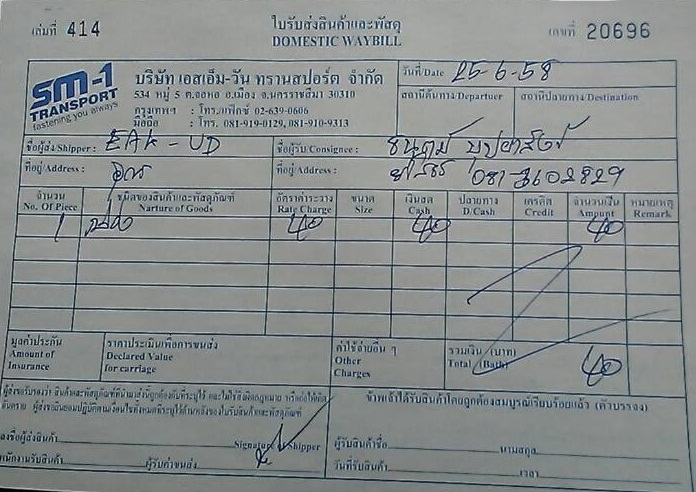 เล่มที่ 414
ใบรับส่งสินค้าและพัสดุ
DOMESTIC WAYBILL
เลขที่ 20696
SM-1
TRANSPORT
fastening you always
บริษัท เอสเอ็ม-วัน ทรานสปอร์ต จำกัด
534 หมู่ 5 ต.จอหอ อ.เมือง จ.นครราชสีมา 30310
กรุงเทพฯ : โทร./แฟ็กซ์ 02-639-0606
มือถือ : โทร. 081-919-0129, 081-910-9313
วันที่/Date 25-6-58
สถานีต้นทาง/Departuer สถานีปลายทาง/Destination
ชื่อผู้ส่ง/Shipper : EAK-UD
ชื่อผู้รับ/Consignee :
ที่อยู่/Address :
ที่อยู่/Address : 081-3602829
จำนวน ชนิดของสินค้าและพัสดุภัณฑ์ อัตราค่าระวาง ขนาด เงินสด ปลายทาง เครดิต จำนวนเงิน หมายเหตุ
No. Of Piece Narture of Goods Rate Charge Size Cash D/Cash Credit Amount Remark
1 40 40 40
มูลค่าประกัน
Amount of
Insurance
ราคาประเมินเพื่อการขนส่ง
Declared Value
for carriage
ค่าใช้จ่ายอื่น ๆ
Other
Charges
รวมเงิน (บาท)
Total (Bath) 40
ผู้ส่งขอรับรองว่า สินค้าและพัสดุภัณฑ์ที่นำมาส่งนี้ถูกต้องดังที่ระบุไว้
ข้าพเจ้าได้รับสินค้าโดยถูกต้องสมบูรณ์เรียบร้อยแล้ว (ตัวบรรจง)
ลงชื่อผู้ส่งสินค้า Signature of Shipper
พนักงานรับสินค้า ผู้รับค่าขนส่ง
ผู้รับสินค้าชื่อ นามสกุล
วันที่รับสินค้า เวลา